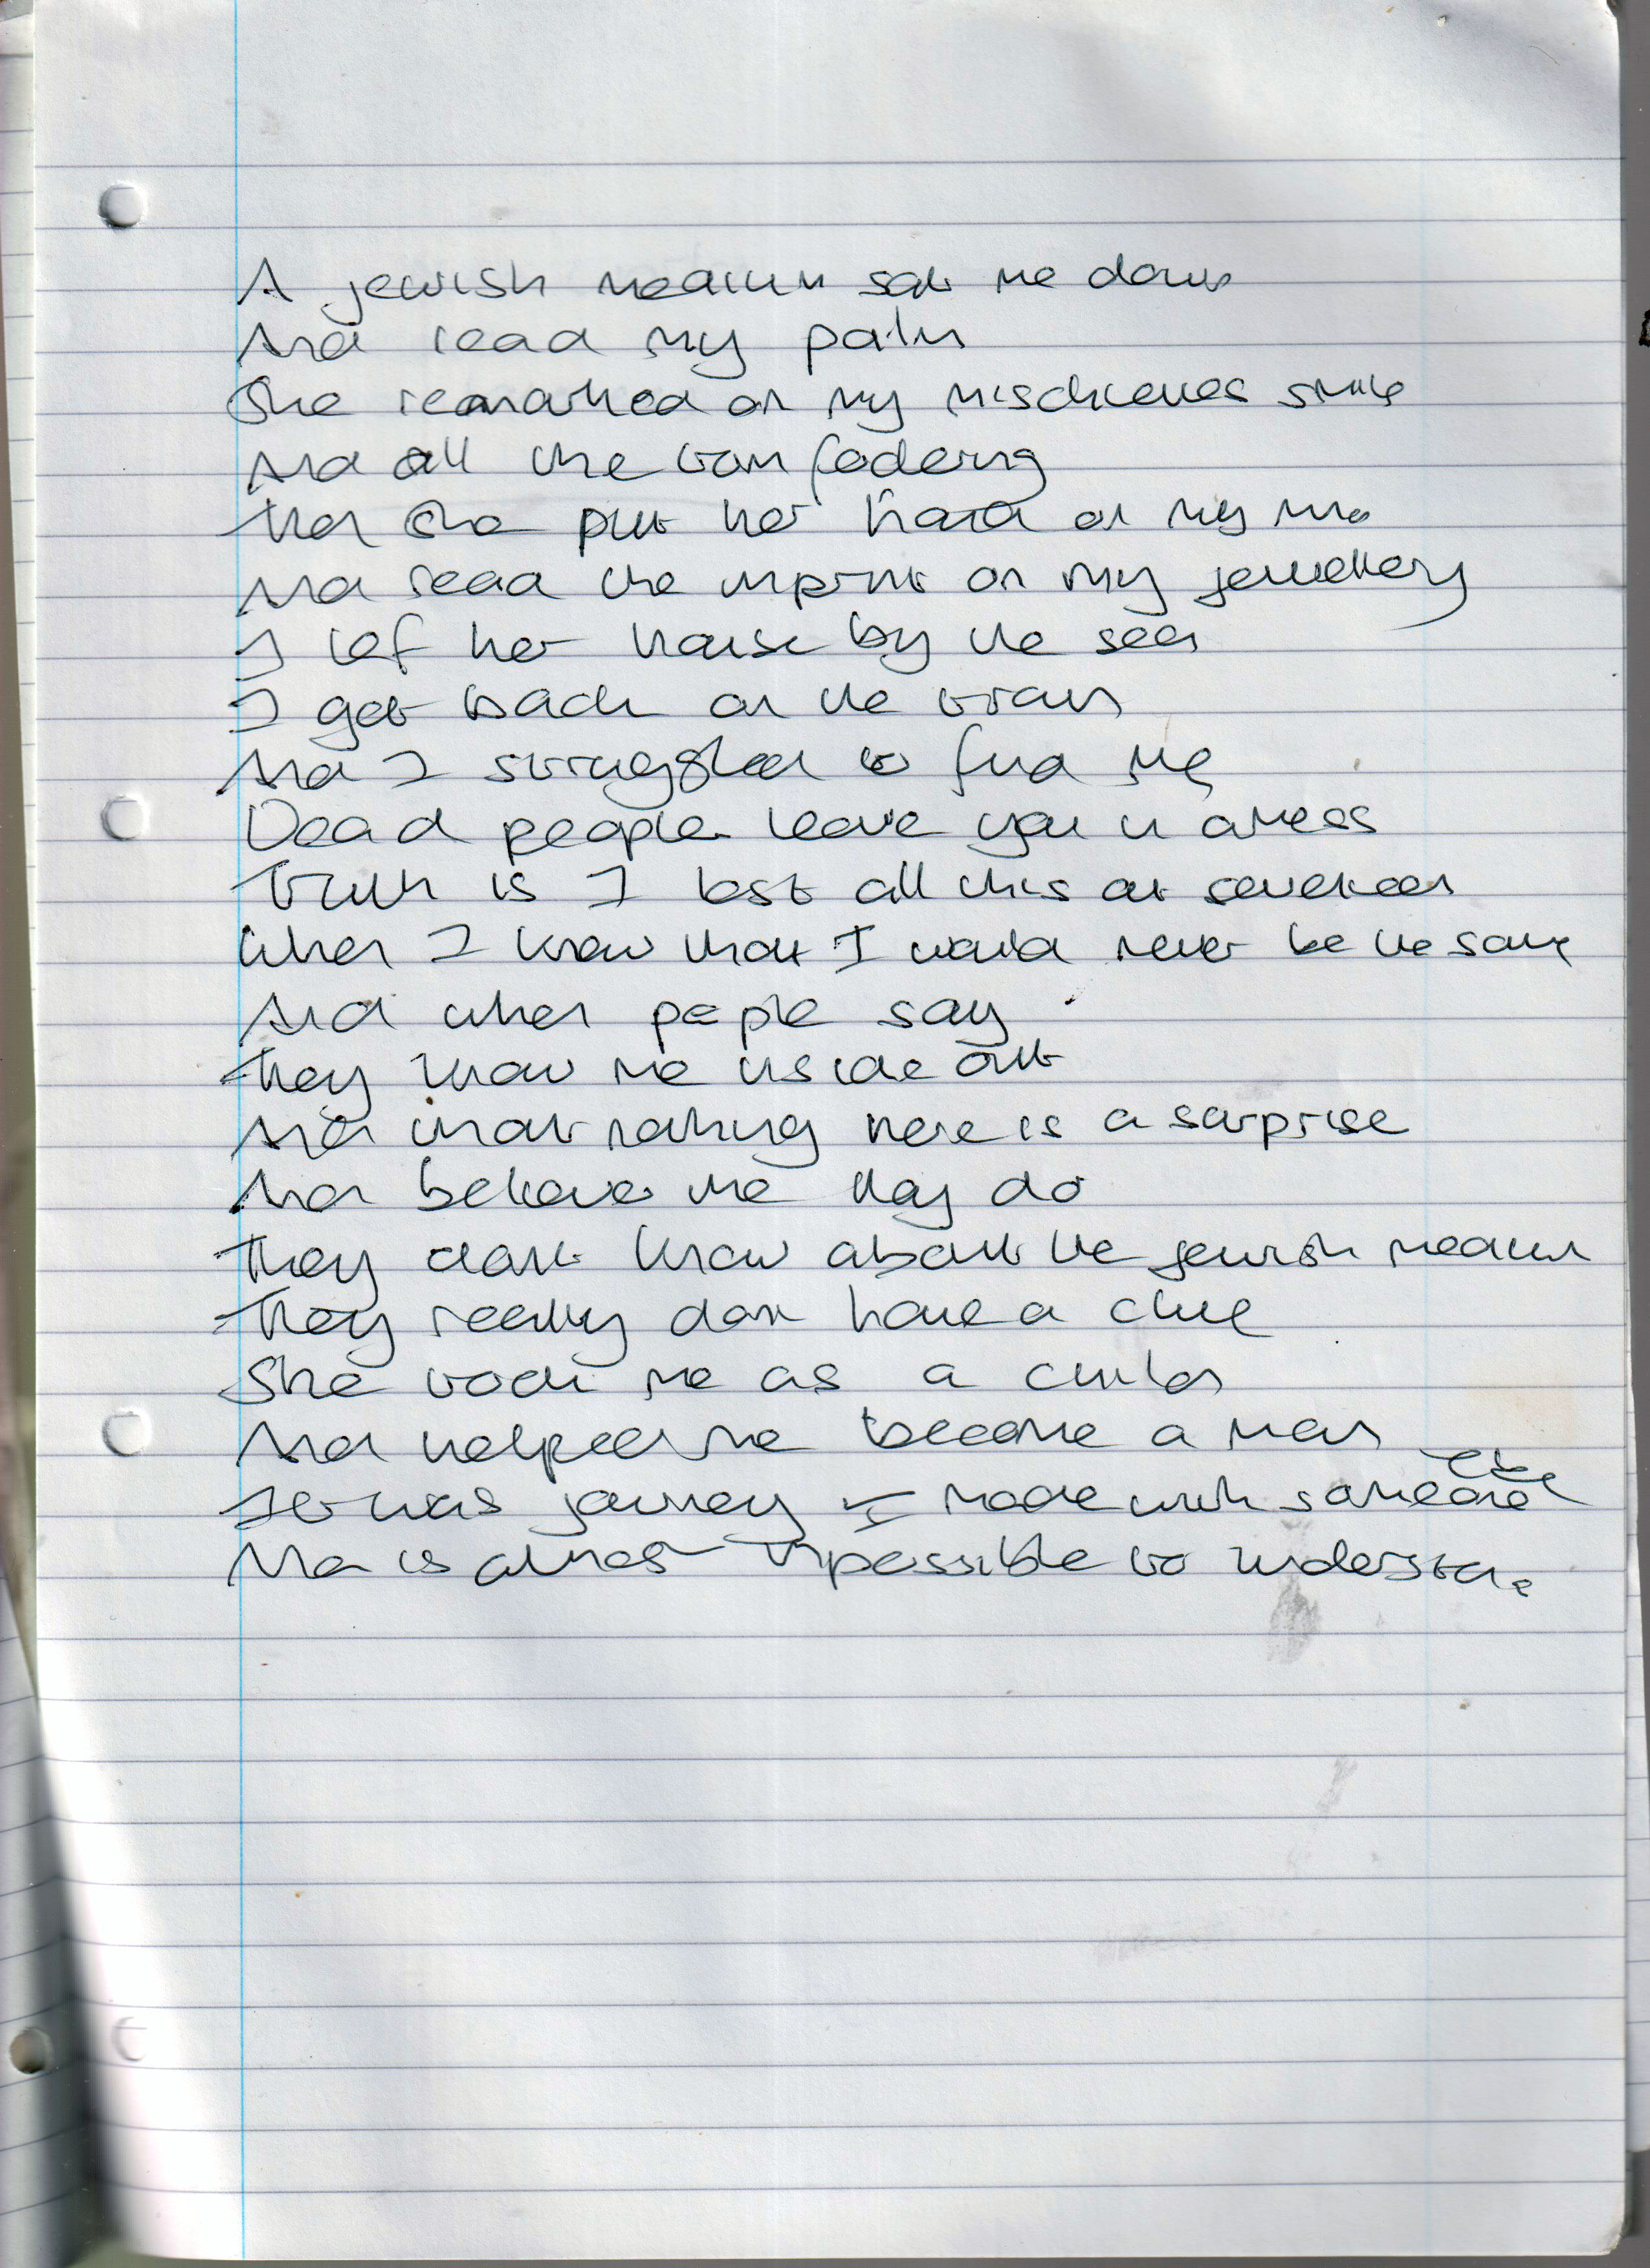 A jewish medium sat me down
And read my palm
She remarked on my mischieves smile
And all the tom foolering
then She put her hand on my
And read the imprint on my jewellery
I lef her house by the sea
I got back on the train
And I struggled to find me
Dead people leave you in a mess
Truth is I lost all this at seventeen
When I knew that I would never be the same
And when people say
They know me inside out
And that nothing here is a surprise
And believe me they do
They dont know about the jewish medium
They really don have a clue
She took me as a child
And helped me become a man
It was journey I made with someone else
tha is almost impossible to understa